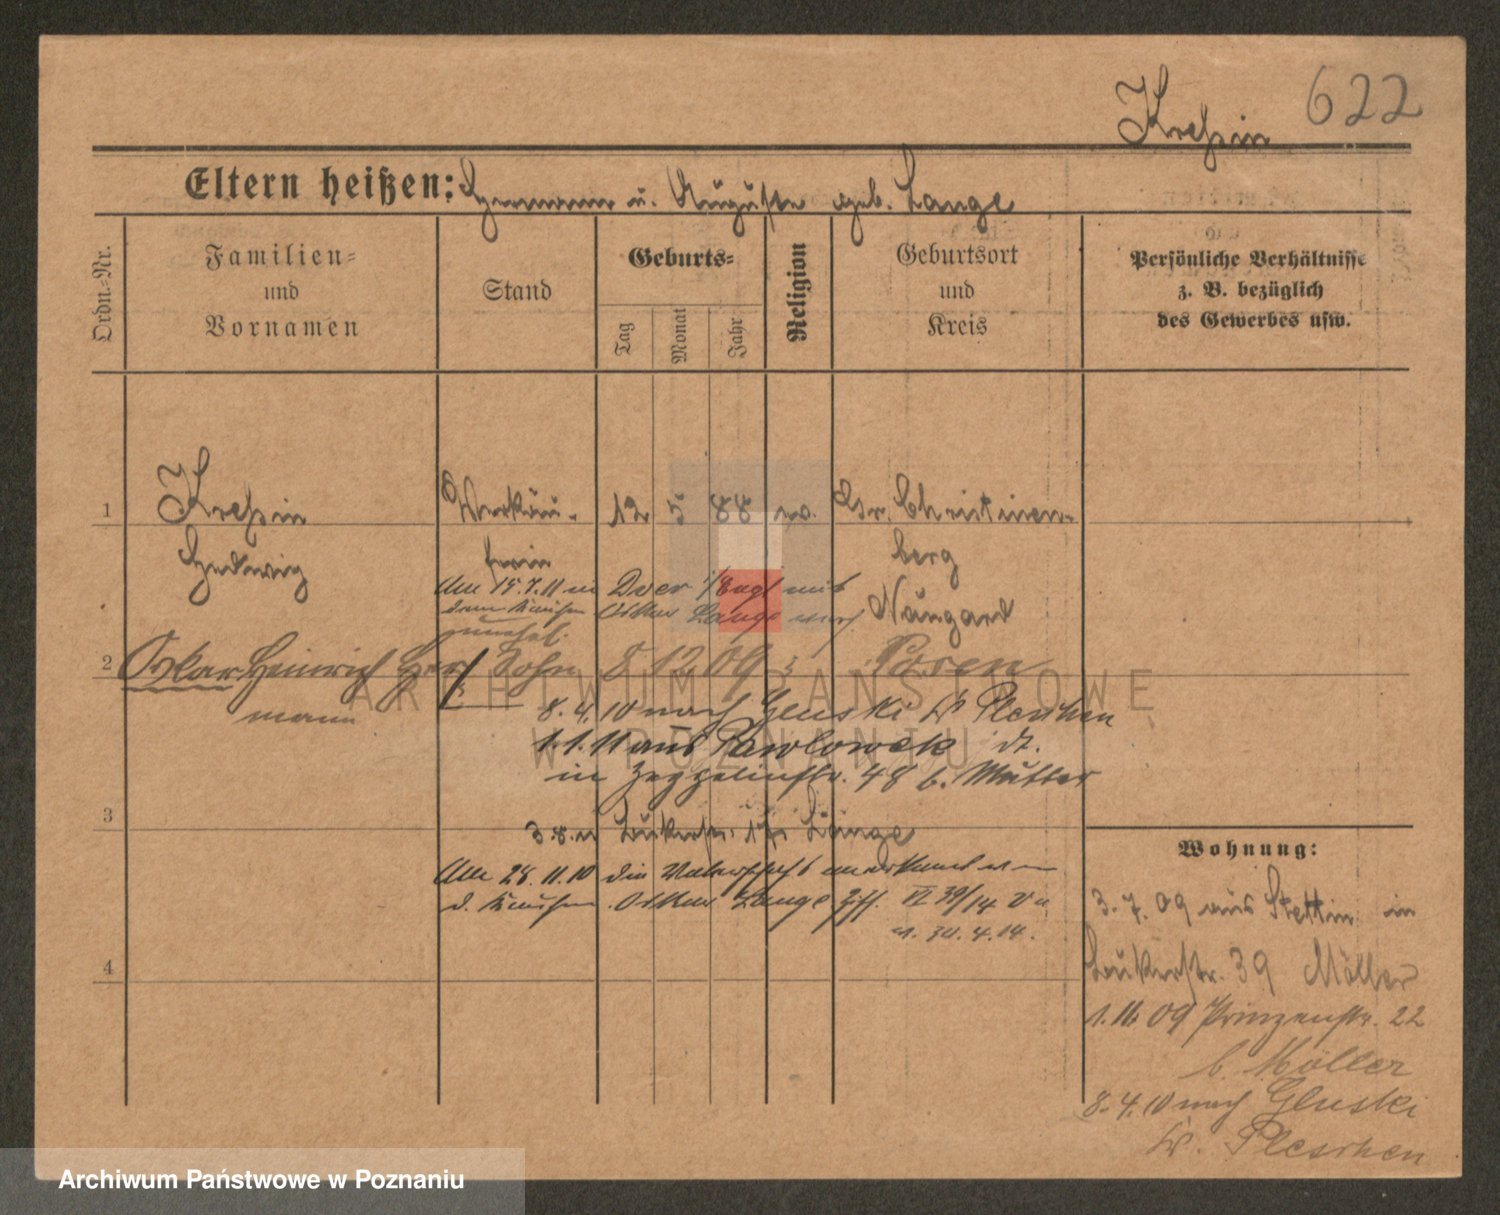 Kreßin 622
Eltern heißen: Hermann u. Auguste geb. Lange
Ordn.-Nr.
Familien-
und
Vornamen
Stand
Geburts-
Tag
Monat
Jahr
Religion
Geburtsort
und
Kreis
Persönliche Verhältnisse
z. B. bezüglich
des Gewerbes usw.
1 Kreßin Verkäu- 12 5 88 ev. Gr. Christinen-
Hedwig ferin berg
Am 15.7.11 in mit
Oskar Lange
Naugard
2 Oskar Heinrich Her- Sohn 8 12 09 Posen
mann
8.4.10 nach Gluski Kr Pleschen
1.1.11 aus Pawlowek
in Zeppelinstr. 48 b. Mutter
3
Lange
Am 28.11.10 die Vaterschaft anerkannt
Oskar Lange VI 39/14
v. 30.4.14.
4
Wohnung:
3.7.09 aus Stettin in
39 Möller
1.11.09 Prinzenstr. 22
b. Möller
8.4.10 nach Gluski
Kr. Pleschen
ARCHIWUM PAŃSTWOWE
W POZNANIU
Archiwum Państwowe w Poznaniu